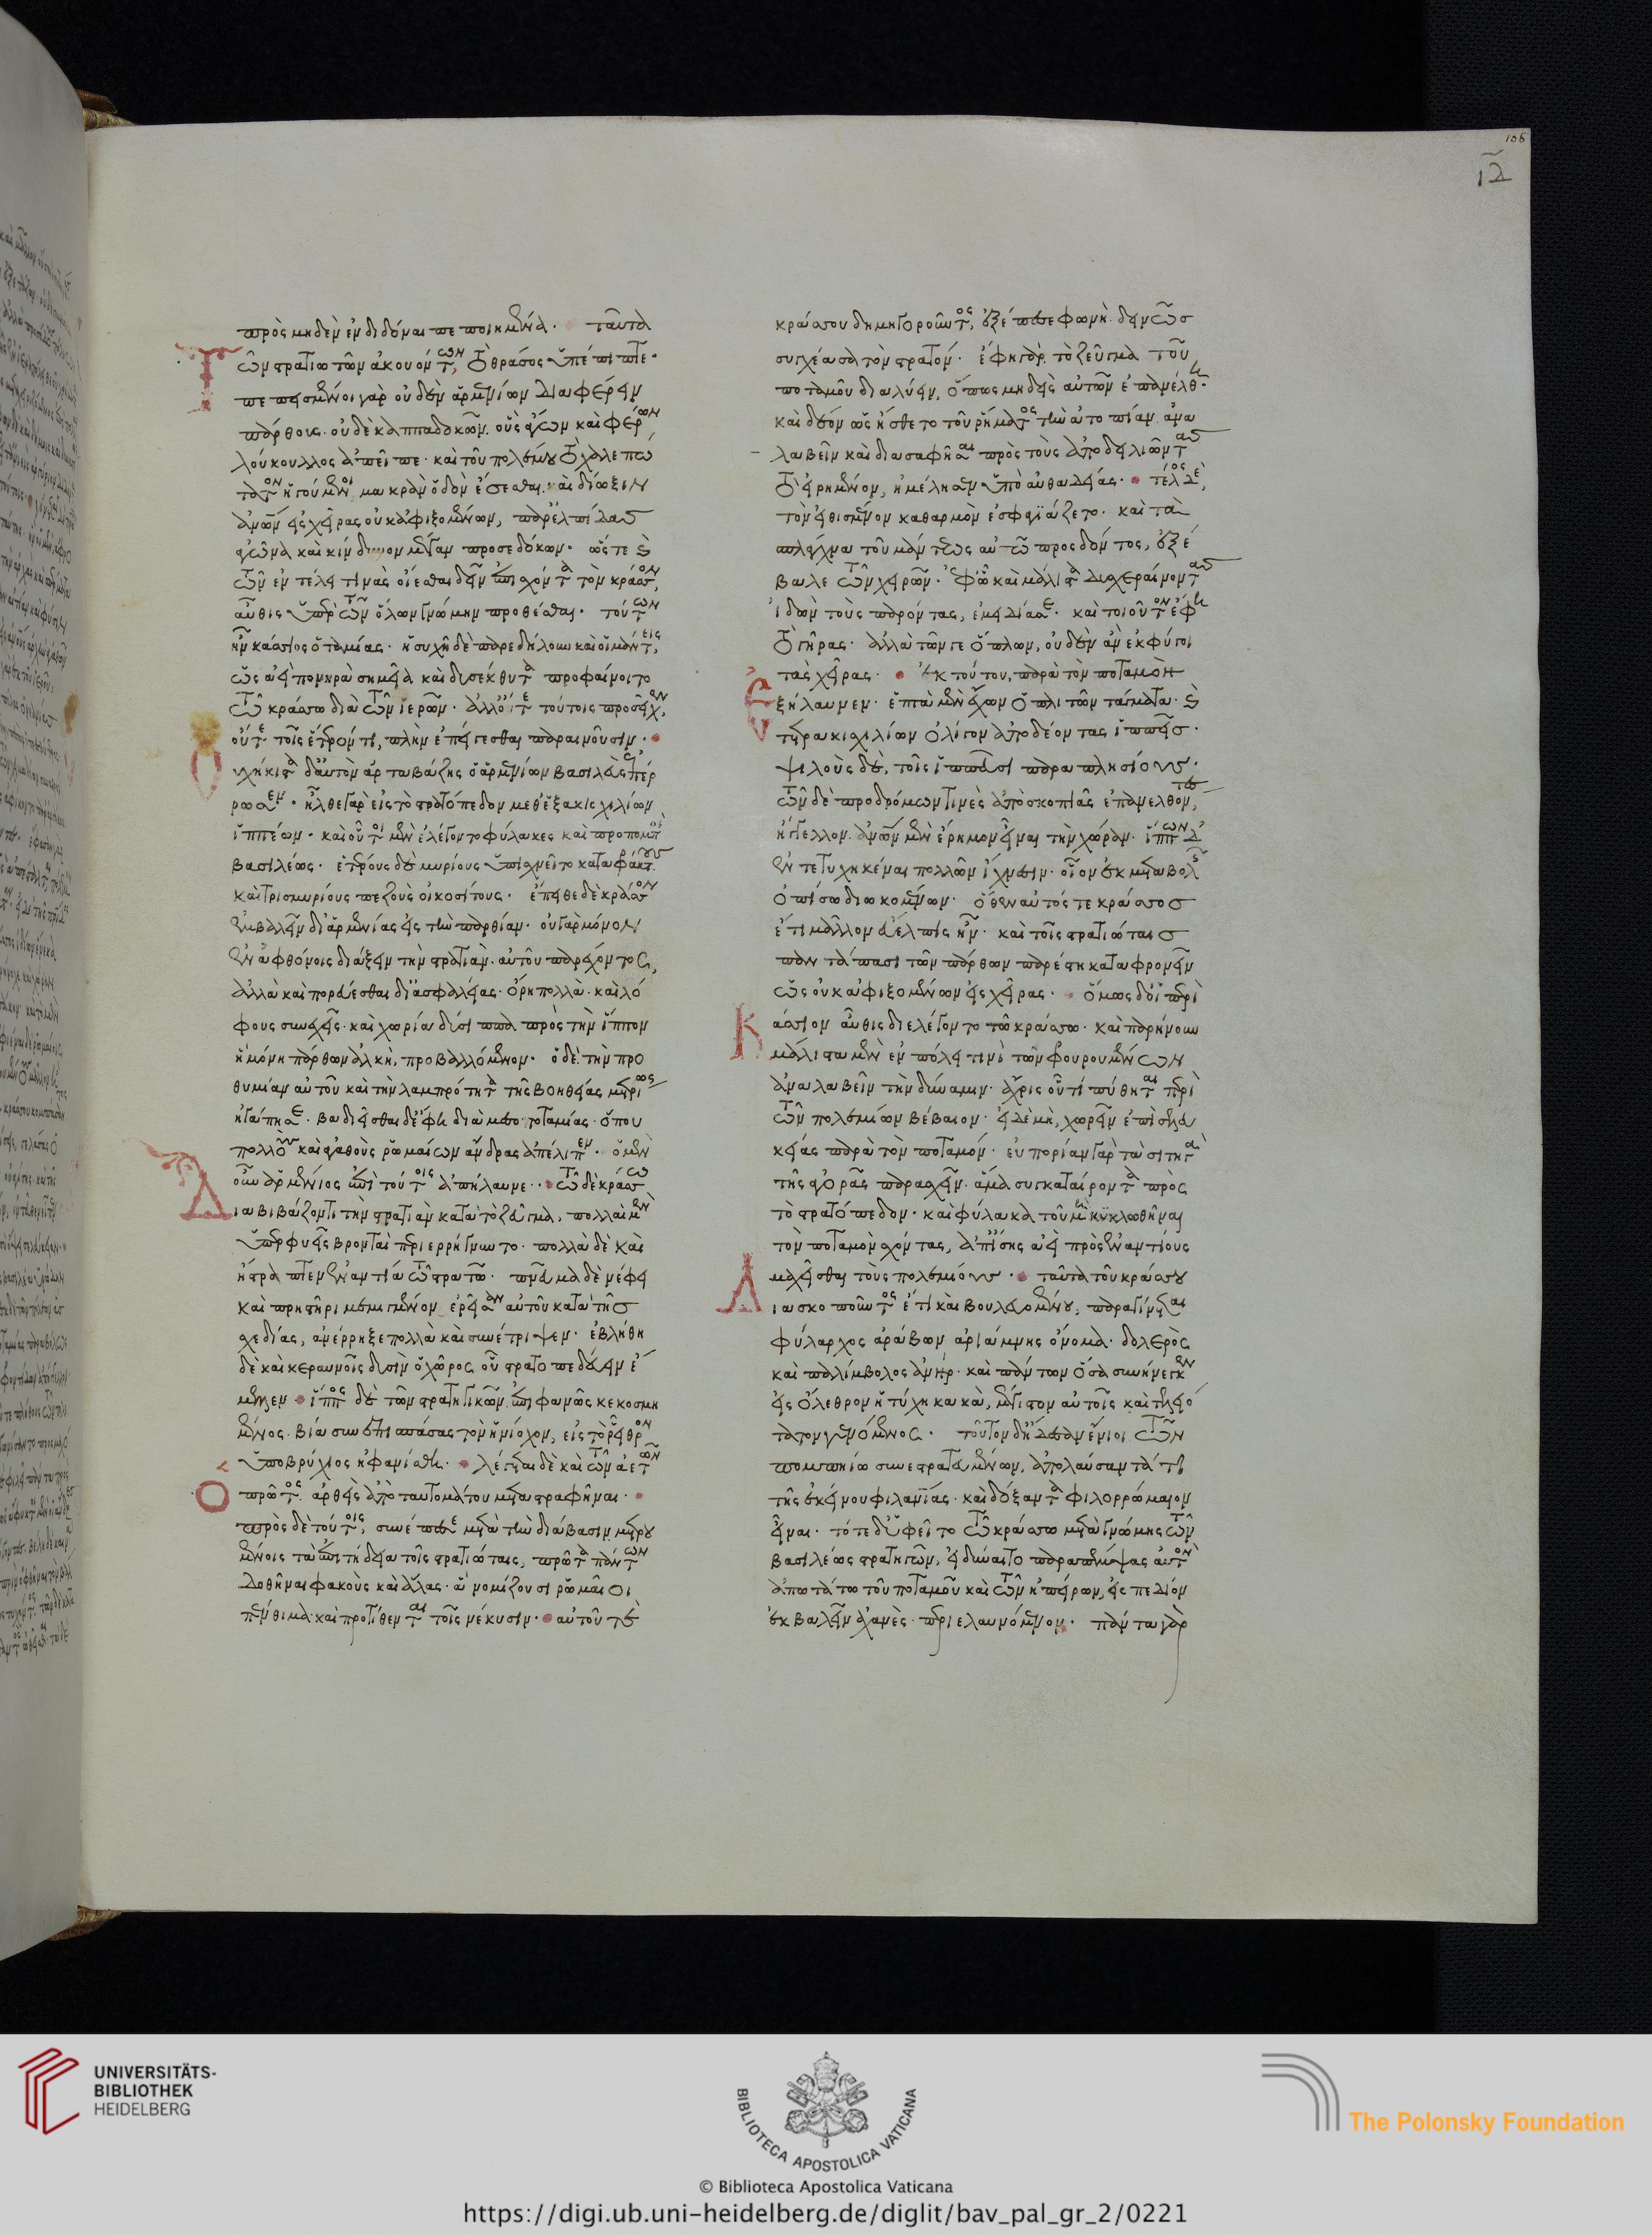 πρὸς μηδὲν ἐνδιδόναι πεποιημένα. ταῦτα
Τῶν στρατιωτῶν ἀκουόντων, τὸ θράσος ὑπέπιπτε.
πεπεισμένοι γὰρ οὐδὲν ἀρμενίων διαφέρειν
πάρθους. οὐδὲ καππαδοκῶν. οὓς ἄγων καὶ φέρων
λούκουλλος ἀπεῖπε. καὶ τοῦ πολέμου τὸ χαλεπώ
τατον ἡγούμενοι μακρὰν ὁδὸν ἔσεσθαι. καὶ δίωξιν
ἀνδρῶν εἰς χεῖρας οὐκ ἀφιξομένων, παρ' ἐλπίδας
ἀγῶνα καὶ κίνδυνον μέγαν προσεδόκων. ὥστε καὶ
τῶν ἐν τέλει τινὰς οἴεσθαι δεῖν ἐπισχόντα τὸν κράσσον,
αὖθις ὑπὲρ τῶν ὅλων γνώμην προθέσθαι. τούτων
ἦν κάσσιος ὁ ταμίας. ἡσυχῇ δὲ παρεδήλουν καὶ οἱ μάντεις,
ὡς ἀεὶ πονηρὰ σημεῖα καὶ δυσέκθυτα προφαίνοιτο
τῷ κράσσῳ διὰ τῶν ἱερῶν. ἀλλ' οὔτε τούτοις προσεῖχεν,
οὔτε τοῖς ἕτερόν τι, πλὴν ἐπείγεσθαι παραινοῦσιν.
Οὐχ ἥκιστα δ' αὐτὸν ἀρταβάζης ὁ ἀρμενίων βασιλεὺς ἐπέρ
ρωσεν. ἦλθε γὰρ εἰς τὸ στρατόπεδον μεθ' ἑξακισχιλίων
ἱππέων. καὶ οὗτοι μὲν ἐλέγοντο φύλακες καὶ προπομποὶ
βασιλέως. ἑτέρους δὲ μυρίους ὑπισχνεῖτο καταφράκτους
καὶ τρισμυρίους πεζοὺς οἰκοσίτους. ἔπειθε δὲ κράσσον
ἐμβαλεῖν δι' ἀρμενίας εἰς τὴν παρθίαν. οὐ γὰρ μόνον
ἐν ἀφθόνοις διάξειν τὴν στρατιὰν. αὐτοῦ παρέχοντος,
ἀλλὰ καὶ πορεύεσθαι δι' ἀσφαλείας. ὄρη πολλὰ. καὶ λό
φους συνεχεῖς. καὶ χωρία δύσιππα πρὸς τὴν ἵππον
ἡ μόνη πάρθων ἀλκὴ, προβαλλόμενον. ὁ δὲ τὴν προ
θυμίαν αὐτοῦ καὶ τὴν λαμπρότητα τῆς βοηθείας μετρίως
ἠγάπησε. βαδιεῖσθαι δ' ἔφη διὰ μεσοποταμίας. ὅπου
πολλοὺς καὶ ἀγαθοὺς ῥωμαίων ἄνδρας ἀπέλιπεν. ὁ μὲν
οὖν ἀρμένιος ἐπὶ τούτοις ἀπήλαυνε. τῷ δὲ κράσσῳ
Διαβιβάζοντι τὴν στρατιὰν κατὰ τὸ ζεῦγμα, πολλαὶ μὲν
ὑπερφυεῖς βρονταὶ περιερρήγνυντο. πολλὰ δὲ καὶ
ἤστραπτεν ἐναντία τῷ στρατῷ. πνεῦμα δὲ νέφει
καὶ πρηστῆρι μεμιγμένον ἐρεῖσαν αὐτοῦ κατὰ τῆς
σχεδίας, ἀνέρρηξε πολλὰ καὶ συνέτριψεν. ἐβλήθη
δὲ καὶ κεραυνοῖς δυσὶν ὁ χῶρος οὗ στρατοπεδεύειν ἔ
μελλεν. ἵππος δὲ τῶν στρατηγικῶν ἐπιφανῶς κεκοσμη
μένος. βίᾳ συνεπισπάσας τὸν ἡνίοχον, εἰς τὸ ῥεῖθρον
ὑποβρύχιος ἠφανίσθη. λέγεται δὲ καὶ τῶν ἀετῶν
Ὁ πρῶτος ἀρθεὶς ἀπὸ ταυτομάτου μεταστραφῆναι.
πρὸς δὲ τούτοις, συνέπεσε μετὰ τὴν διάβασιν μετρου
μένοις τὰ ἐπιτήδεια τοῖς στρατιώταις, πρῶτα πάντων
δοθῆναι φακοὺς καὶ ἅλας. ἃ νομίζουσι ῥωμαῖοι
πένθιμα καὶ προτίθενται τοῖς νέκυσιν. αὐτοῦ τε
106
ιδ
κράσσου δημηγοροῦντος, ἐξέπεσε φωνὴ. δεινῶς
συγχέασα τὸν στρατόν. ἔφη γὰρ τὸ ζεῦγμα τοῦ
ποταμοῦ διαλύειν, ὅπως μηδεὶς αὐτῶν ἐπανέλθῃ.
καὶ δέον ὡς ᾔσθετο τοῦ ῥήματος τὴν ἀτοπίαν ἀνα
λαβεῖν καὶ διασαφῆσαι πρὸς τοὺς ἀποδειλιῶντας
τὸ εἰρημένον, ἠμέλησεν ὑπὸ αὐθαδείας. τέλος δὲ,
τὸν εἰθισμένον καθαρμὸν ἐσφαγιάζετο. καὶ τὰ
σπλάγχνα τοῦ μάντεως αὐτῷ προσδόντος, ἐξέ
βαλε τῶν χειρῶν. ἐφ' ᾧ καὶ μάλιστα δυσχεραίνοντας
ἰδὼν τοὺς παρόντας, ἐμειδίασε. καὶ τοιοῦτον ἔφη
τὸ γῆρας. ἀλλὰ τῶν γε ὅπλων, οὐδὲν ἂν ἐκφύγοι
τὰς χεῖρας. Ἐκ τούτου, παρὰ τὸν ποταμὸν
Ἐξήλαυνεν. ἑπτὰ μὲν ἔχων ὁπλιτῶν τάγματα. καὶ
τετρακισχιλίων ὀλίγον ἀποδέοντας ἱππεῖς.
ψιλοὺς δὲ, τοῖς ἱππεῦσι παραπλησίους.
τῶν δὲ προδρόμων τινὲς ἀπὸ σκοπιᾶς ἐπανελθόντες,
ἤγγελλον. ἀνδρῶν μὲν ἔρημον εἶναι τὴν χώραν. ἵππων δ'
ἐντετυχηκέναι πολλῶν ἴχνεσιν. οἷον ἐκ μεταβολῆς
ὀπίσω διωκομένων. ὅθεν αὐτός τε κράσσος
ἔτι μᾶλλον εὔελπις ἦν. καὶ τοῖς στρατιώταις
παντάπασι τῶν πάρθων παρέστη καταφρονεῖν
ὡς οὐκ ἀφιξομένων εἰς χεῖρας. ὅμως δ' οἱ περὶ
Κάσσιον αὖθις διελέγοντο τῷ κράσσῳ. καὶ παρῄνουν
μάλιστα μὲν ἐν πόλει τινὶ τῶν φρουρουμένων
ἀναλαβεῖν τὴν δύναμιν. ἄχρις οὗ τι πύθηται περὶ
τῶν πολεμίων βέβαιον. εἰ δὲ μὴ, χωρεῖν ἐπὶ σελευ
κείας παρὰ τὸν ποταμόν. εὐπορίαν γὰρ τὰ σιτηγὰ
τῆς ἀγορᾶς παρασχεῖν. ἅμα συγκαταίροντα πρὸς
τὸ στρατόπεδον. καὶ φύλακα τοῦ μὴ κυκλωθῆναι
τὸν ποταμὸν ἔχοντας, ἀπ' ἴσης ἀεὶ πρὸς ἐναντίους
μαχεῖσθαι τοὺς πολεμίους. ταῦτα τοῦ κράσσου
Διασκοποῦντος ἔτι καὶ βουλευομένου, παραγίνεται
φύλαρχος ἀράβων ἀριάμνης ὄνομα. δολερὸς
καὶ παλίμβολος ἀνήρ. καὶ πάντων ὅσα συνήνεγκεν
εἰς ὄλεθρον ἡ τύχη κακὰ, μέγιστον αὐτοῖς καὶ τελεό
τατον γενόμενος. τοῦτον ᾔδεσαν ἔνιοι τῶν
πομπηίῳ συνεστρατευμένων, ἀπολαύσαντά τι
τῆς ἐκείνου φιλανίας. καὶ δόξαντα φιλορρώμαιον
εἶναι. τότε δ' ὑφεῖτο τῷ κράσσῳ μετὰ γνώμης τῶν
βασιλέως στρατηγῶν, εἰ δύναιτο παρατρέψας αὐτὸν
ἀπωτάτω τοῦ ποταμοῦ καὶ τῶν ὑπωρειῶν, εἰς πεδίον
ἐκβαλεῖν ἀχανὲς. περιελαυνόμενον. πάντα γὰρ
UNIVERSITÄTS-
BIBLIOTHEK
HEIDELBERG
BIBLIOTECA APOSTOLICA VATICANA
The Polonsky Foundation
© Biblioteca Apostolica Vaticana
https://digi.ub.uni-heidelberg.de/diglit/bav_pal_gr_2/0221